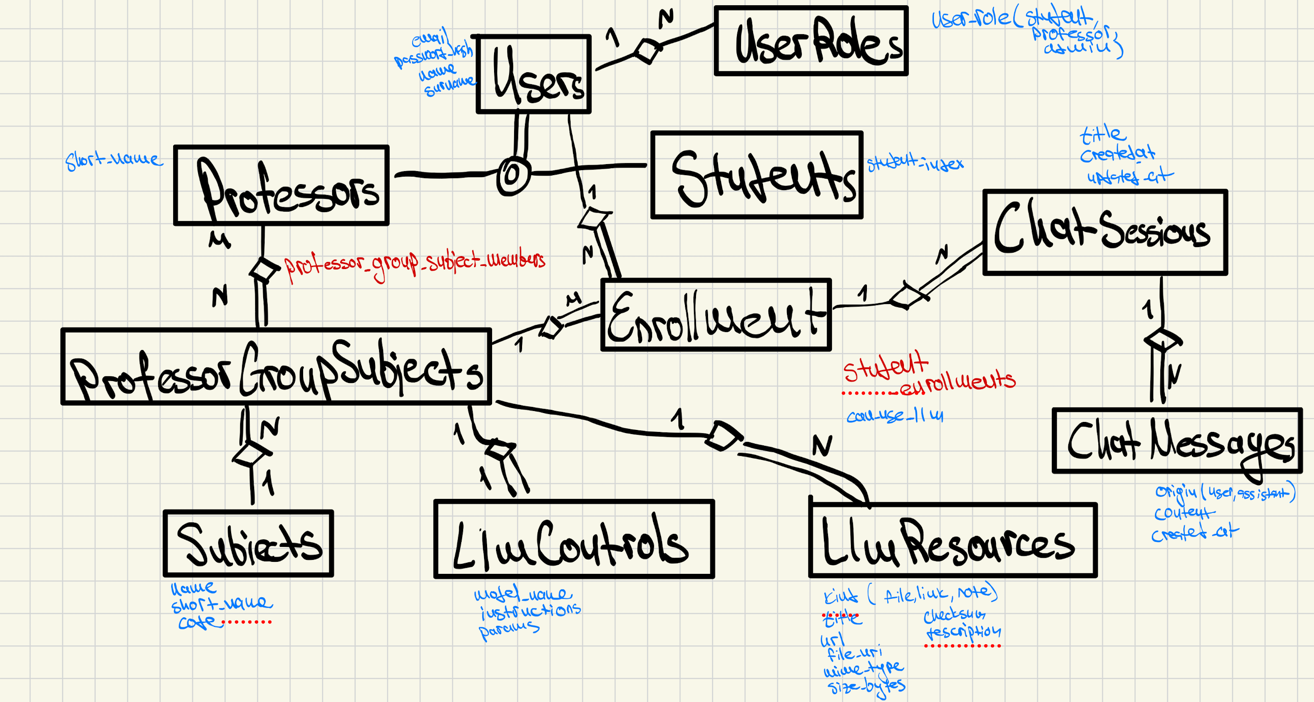 email
password_hash
name
surname
Users
1
N
UserRoles
user_role (student,
professor,
admin)
short_name
Professors
Students
student_index
title
created_at
updated_at
ChatSessions
M
professor_group_subject_members
N
1
N
Enrollment
1
N
1
M
ProfessorGroupSubjects
student
enrollments
can_use_llm
1
N
ChatMessages
origin (user, assistant)
content
created_at
N
1
Subjects
name
short_name
code
1
1
LlmControls
model_name
instructions
params
1
N
LlmResources
kind ( file, link, note)
title
checksum
url
description
file_uri
mime_type
size_bytes